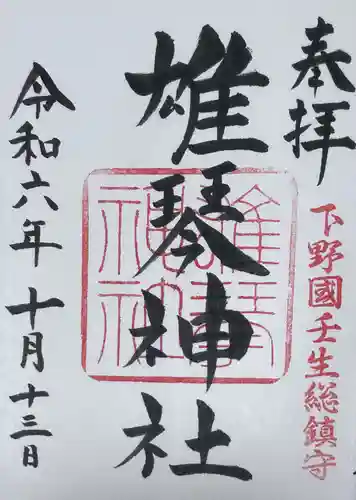 奉拝
下野國壬生総鎮守
雄琴神社
雄琴神社
令和六年十月十三日